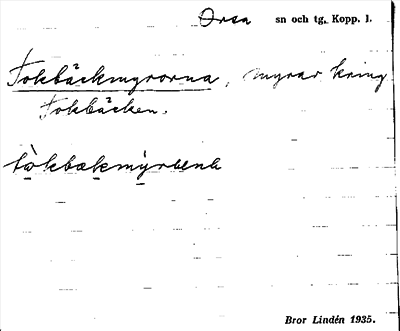 Orsa sn och tg. Kopp. l.
Tokbäckmyrorna, myrar kring
Tokbäcken.
Bror Lindén 1935.